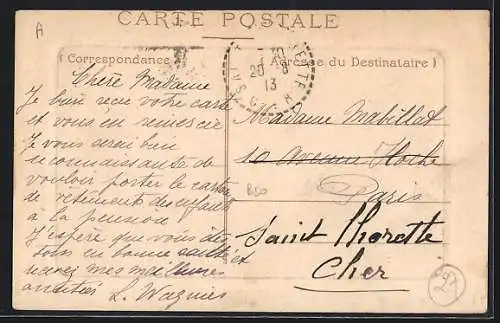 A
CARTE POSTALE
Correspondance
Adresse du Destinataire
Chère Madame
Je bien reçu votre carte
et vous en remercie
Je vous serai bien
reconnaissante de
vouloir porter le carton
de vêtements des enfants
à la pension
J'espère que vous êtes
tous en bonne santé et
recevez mes meilleures
amitiés L. Wagnies
20 8
13
Madame Mabillat
10 Avenue Hoche
Paris
Saint Thorette
Cher